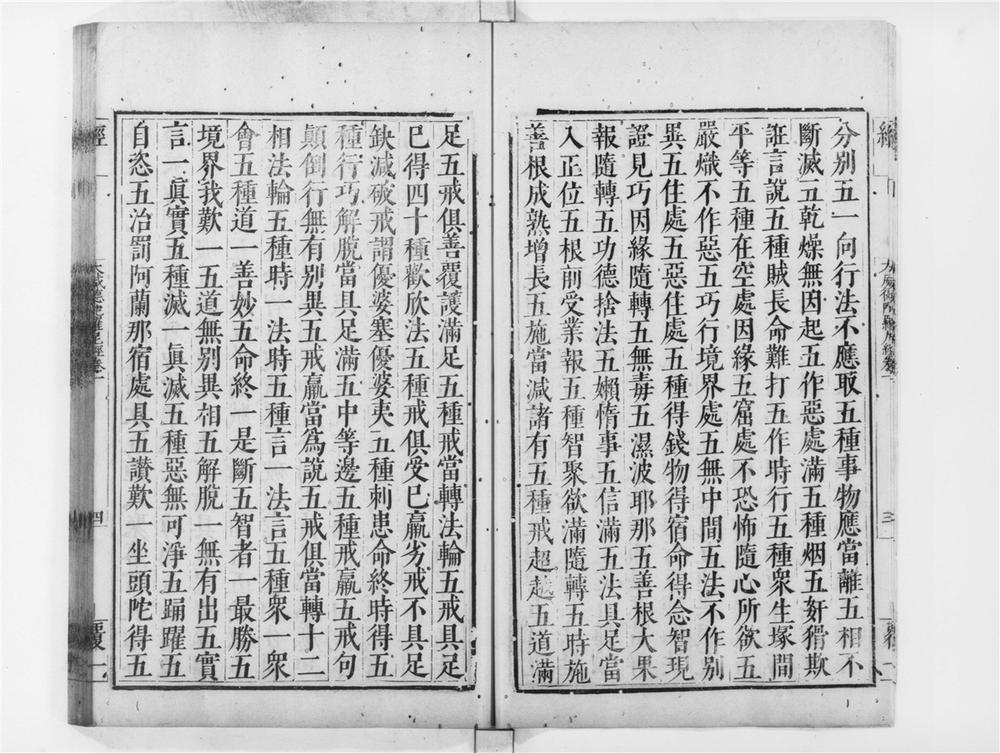 分别五一向行法不應取五種事物應當離五相不
斷滅五乾燥無因起五作惡處滿五種烟五姧猾欺
誑言說五種賊長命難打五作時行五種衆生塚間
平等五種在空處因緣五窟處不恐怖隨心所欲五
嚴熾不作惡五巧行境界處五無中間五法不作別
異五住處五惡住處五種得錢物得宿命得念智現
證見巧因緣隨轉五無毒五濕波耶那五善根大果
報隨轉五功德捨法五嬾惰事五信滿五法具足當
入正位五根前受業報五種智聚欲滿隨轉五時施
善根成熟增長五施當減諸有五種戒超越五道滿
足五戒俱善覆護滿足五種戒當轉法輪五戒具足
已得四十種歡欣法五種戒俱受已羸劣戒不具足
缺減破戒謂優婆塞優婆夷五種刺患命終時得五
種行巧解脫當具足滿五中等邊五種戒羸五戒句
顛倒行無有別異五戒羸當爲說五戒俱當轉十二
相法輪五種時一法時五種言一法言五種衆一衆
會五種道一善妙五命終一是斷五智者一最勝五
境界我歎一五道無別異相五解脫一無有出五實
言一眞實五種滅一眞滅五種惡無可淨五踊躍五
自恣五治罰阿蘭那宿處具五讚歎一坐頭陀得五
經
大威德陀羅尼經卷一
四